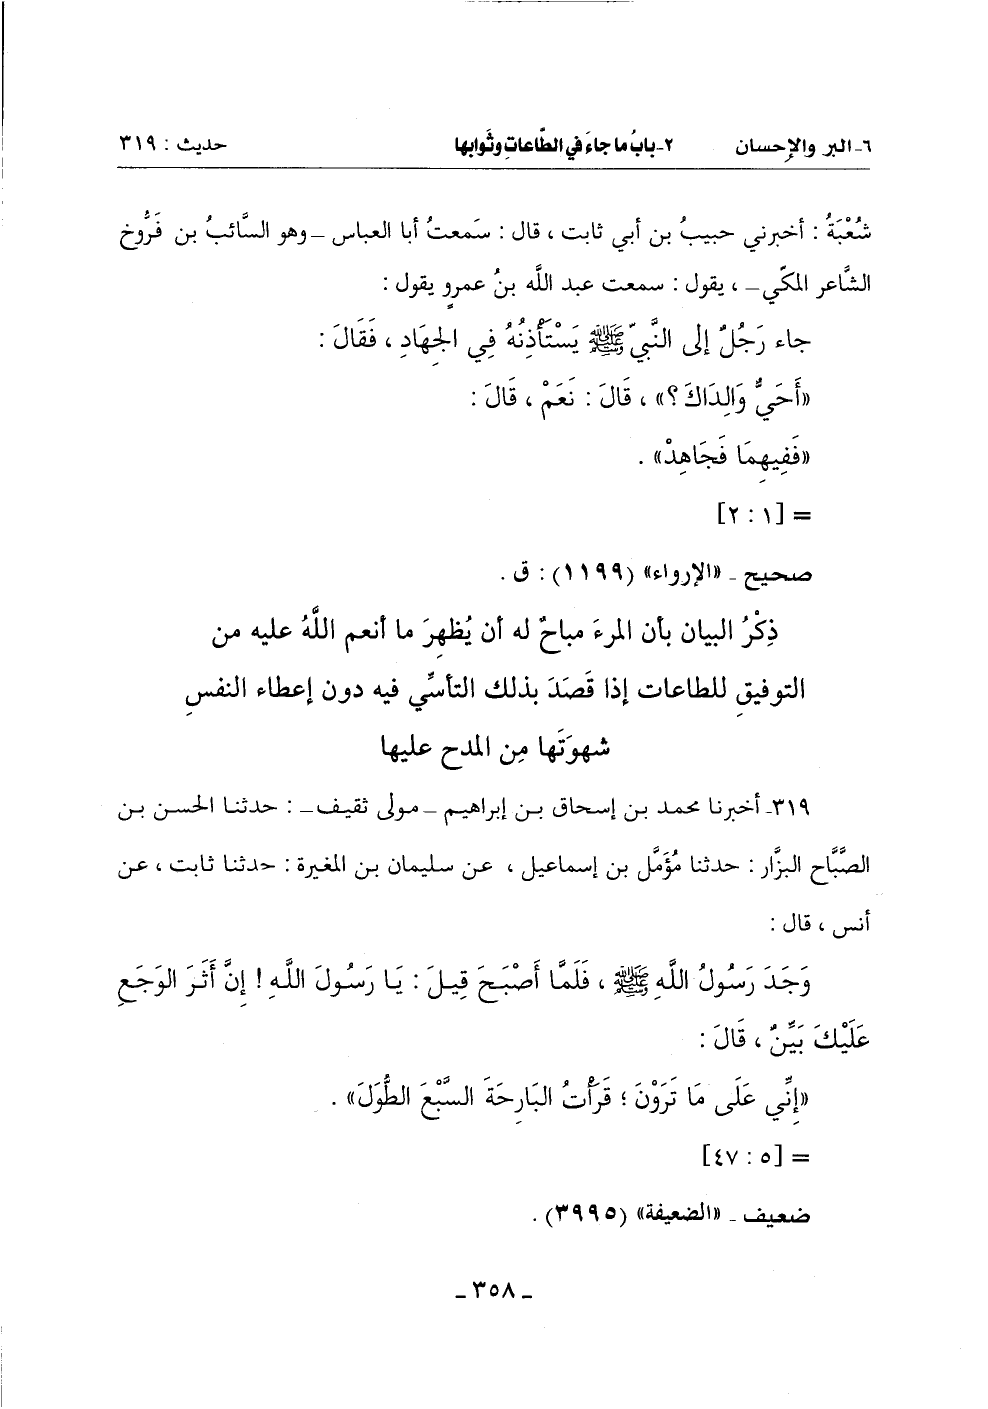 ٦- البر والإحسان ٢- بابُ ما جاءَ في الطّاعاتِ وثَوابها حديث : ٣١٩
شُعْبَةُ : أخبرني حبيبُ بن أبي ثابت ، قال : سَمعتُ أبا العباس _ وهو السَّائبُ بن فَرُّوخ
الشَّاعر المكّي _ ، يقول : سمعت عبد اللَّه بنُ عمرٍو يقول :
جاء رَجُلٌ إلى النَّبيّ ﷺ يَسْتَأْذِنُهُ فِي الجهَادِ ، فَقَالَ :
«أَحَيٌّ وَالِدَاكَ ؟» ، قَالَ : نَعَمْ ، قَالَ :
«فَفِيهِمَا فَجَاهِدْ» .
= [١ : ٢]
صحيح ـ «الإرواء» (١١٩٩) : ق .
ذِكْرُ البيان بأن المرءَ مباحٌ له أن يُظهِرَ ما أنعم اللَّهُ عليه من
التوفيقِ للطاعات إذا قَصَدَ بذلك التأسِّي فيه دون إعطاء النفسِ
شهوَتَها مِن المدح عليها
٣١٩ـ أخبرنا محمد بن إسحاق بن إبراهيم _ مولى ثقيف _ : حدثنا الحسن بن
الصَّبَّاح البزَّار : حدثنا مُؤَمَّل بن إسماعيل ، عن سليمان بن المغيرة : حدثنا ثابت ، عن
أنس ، قال :
وَجَدَ رَسُولُ اللَّهِ ﷺ ، فَلَمَّا أَصْبَحَ قِيلَ : يَا رَسُولَ اللَّهِ ! إِنَّ أَثَرَ الوَجَعِ
عَلَيْكَ بَيِّنٌ ، قَالَ :
«إِنِّي عَلَى مَا تَرَوْنَ ؛ قَرَأْتُ البَارِحَةَ السَّبْعَ الطُّوَلَ» .
= [٥ : ٤٧]
ضعيف ـ «الضعيفة» (٣٩٩٥) .
ـ ٣٥٨ ـ